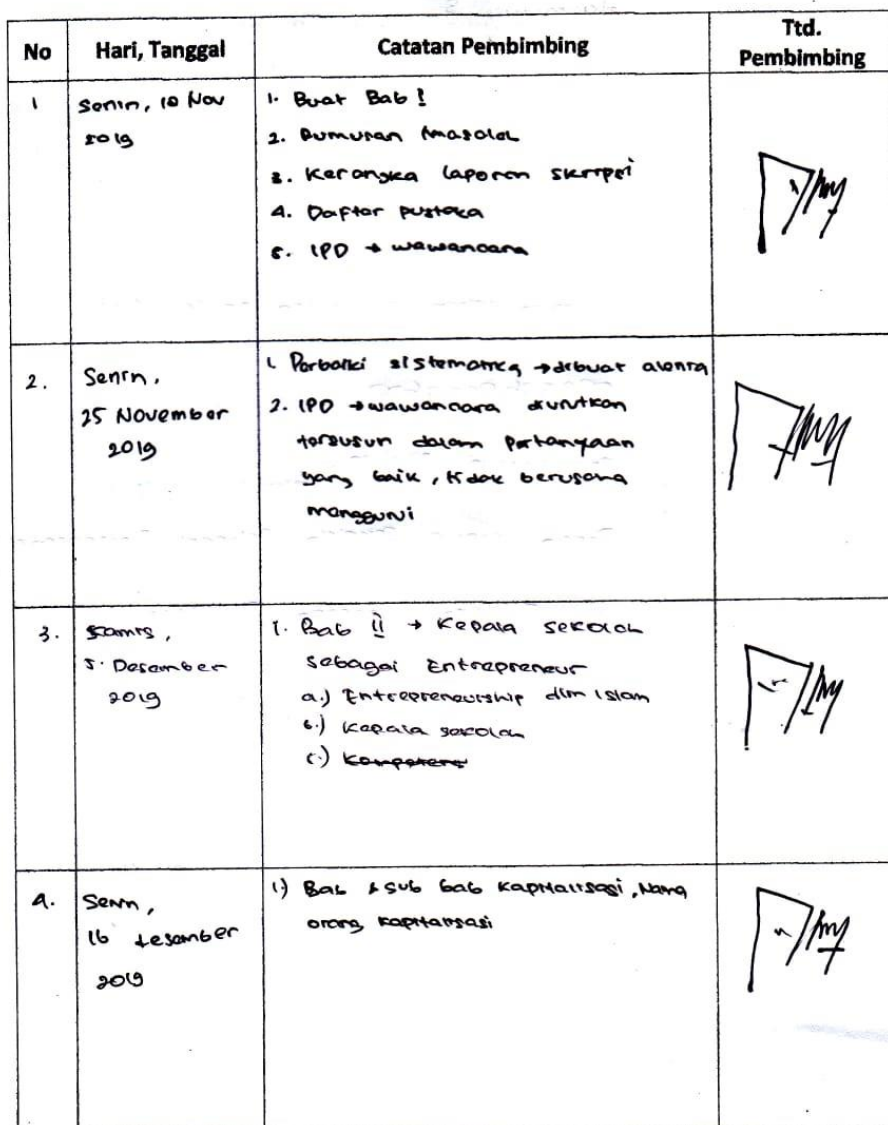 No Hari, Tanggal Catatan Pembimbing Ttd. Pembimbing
1 Senin, 18 Nov 2019
1. Buat Bab I
2. Rumusan Masalah
3. Kerangka laporan skripsi
4. Daftar pustaka
5. IPD → wawancara
2. Senin,
25 November
2019
1. Perbaiki sistematika → dibuat alenia
2. IPD → wawancara diurutkan
tersusun dalam pertanyaan
yang baik, tidak berusaha
menggurui
3. Kamis,
5 Desember
2019
1. Bab II → Kepala sekolah
sebagai Entrepreneur
a.) Entrepreneurship dlm Islam
b.) Kepala sekolah
c.)
4. Senin,
16 Desember
2019
1.) Bab & sub bab kapitalisasi, Nama
orang kapitalisasi